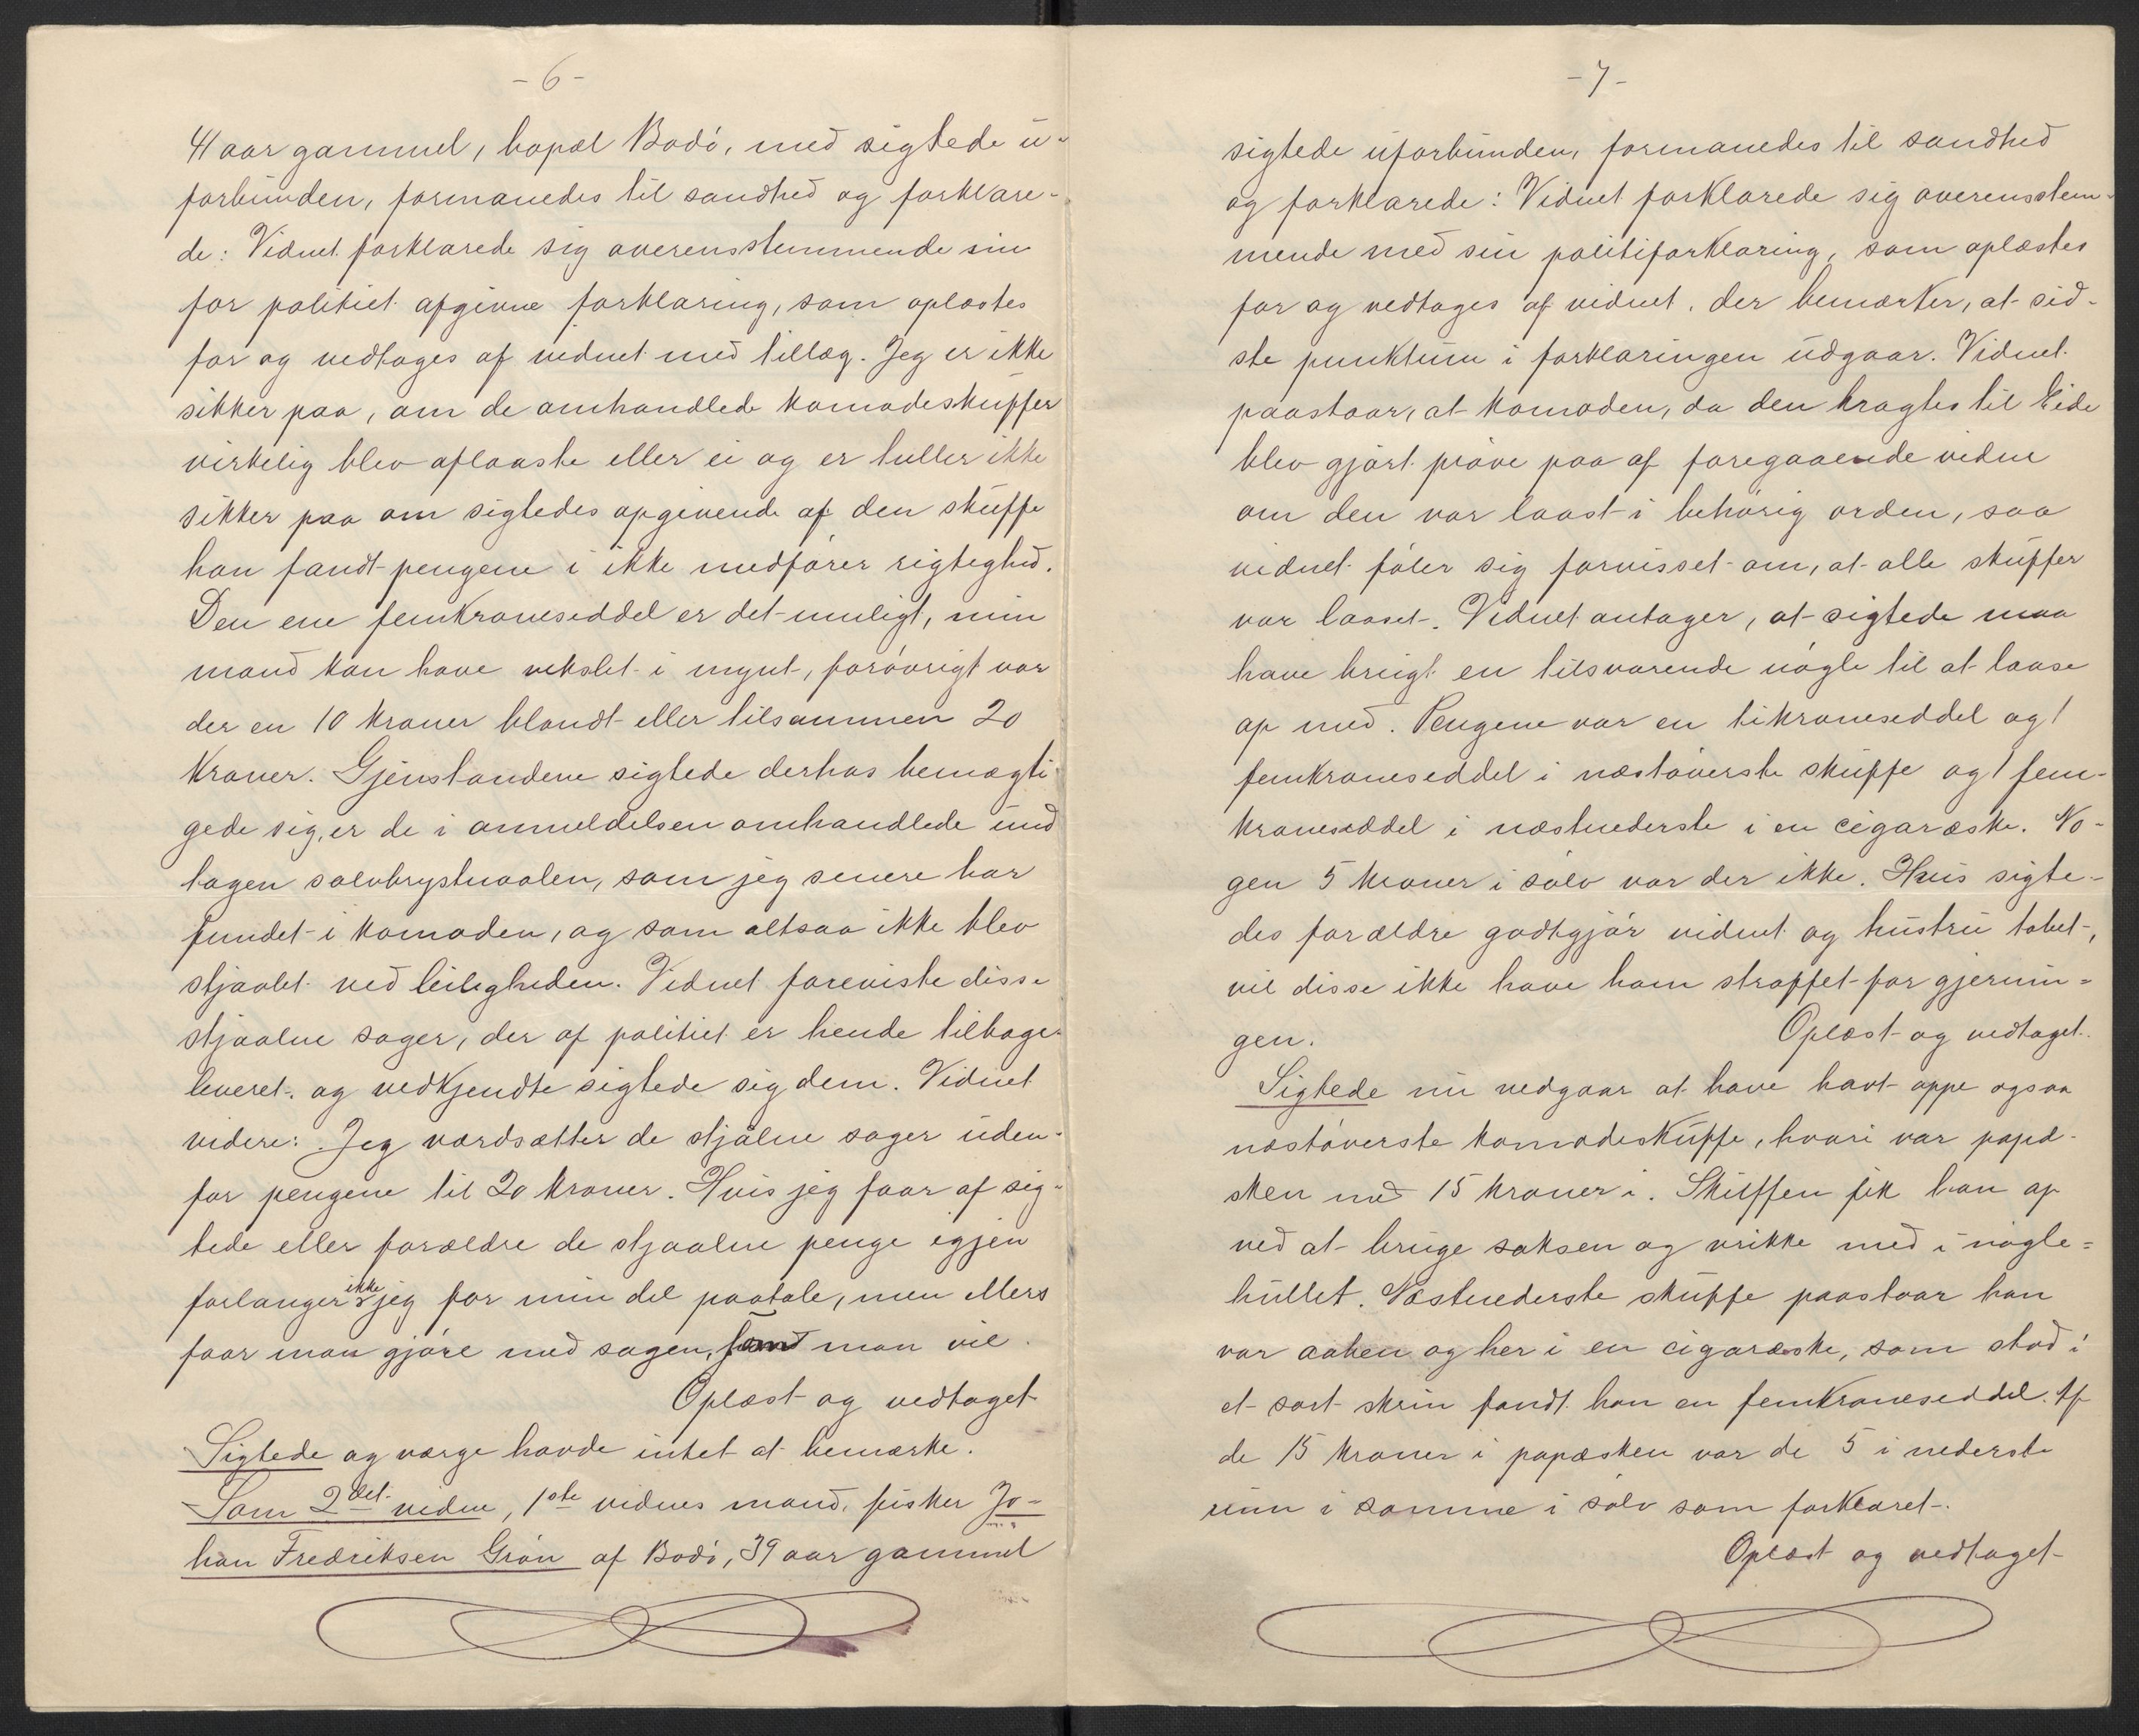 - 6 -
41 aar gammel, bopæl Bodö, med sigtede u-
forbunden, formanedes til sandhed og forklare-
de: Vidnet forklarede sig overensstemmende sin
for politiet afgivne forklaring, som oplæstes
for og vedtages af vidnet med tillæg. Jeg er ikke
sikker paa, om de omhandlede komodeskuffer
virkelig blev aflaaste eller ei og er heller ikke
sikker paa om sigtedes opgivende af den skuffe
han fandt pengene i ikke medfører rigtighed.
Den ene femkroneseddel er det muligt, min
mand kan have vekslet i mynt, forövrigt var
der en 10 kroner blandt eller tilsammen 20
kroner. Gjenstandene sigtede derhos bemægti-
gede sig, er de i anmeldelsen omhandlede und-
tagen sølvbrystnaalen, som jeg senere har
fundet i komoden, og som altsaa ikke blev
stjaalet ved leiligheden. Vidnet foreviste disse
stjaalne sager, der af politiet er hende tilbage-
leveret, og vedkjendte sigtede sig dem. Vidnet
videre: Jeg værdsætter de stjålne sager uden-
for pengene til 20 kroner. Hvis jeg faar af sig-
tede eller forældre de stjaalne penge igjen
forlanger ikke jeg for min del paatale, men ellers
faar man gjöre med sagen, som man vil.
Oplæst og vedtaget
Sigtede og værge havde intet at bemærke.
Som 2det vidne, 1ste vidnes mand, fisker Jo-
han Fredriksen Grön af Bodö, 39 aar gammel
- 7 -
sigtede uforbunden, formanedes til sandhed
og forklarede: Vidnet forklarede sig overensstem-
mende med sin politiforklaring, som oplæstes
for og vedtages af vidnet, der bemærker, at sid-
ste punktum i forklaringen udgaar. Vidnet
paastaar, at komoden, da den bragtes til Eide
blev gjort pröve paa af foregaaende vidne
om den var laast i behörig orden, saa
vidnet föler sig forvisset om, at alle skuffer
var laaset. Vidnet antager, at sigtede maa
have brugt en tilsvarende nögle til at laase
op med. Pengene var en tikroneseddel og 1
femkroneseddel i næstöverste skuffe og 1 fem-
kroneseddel i næstnederste i en cigaræske. No-
gen 5 kroner i sölv var der ikke. Hvis sigte-
des forældre godtgjör vidnet og hustru tabet,
vil disse ikke have ham straffet for gjernin-
gen.
Oplæst og vedtaget.
Sigtede nu vedgaar at have havt oppe ogsaa
næstöverste komodeskuffe, hvori var papæ-
sken med 15 kroner i. Skuffen fik han op
ved at bruge saksen og vrikke med i nögle-
hullet. Næstnederste skuffe paastaar han
var aaben og her i en cigaræske, som stod i
et sort skrin fandt han en femkroneseddel. Af
de 15 kroner i papæsken var de 5 i nederste
rum i samme i sölv som forklaret.
Oplæst og vedtaget